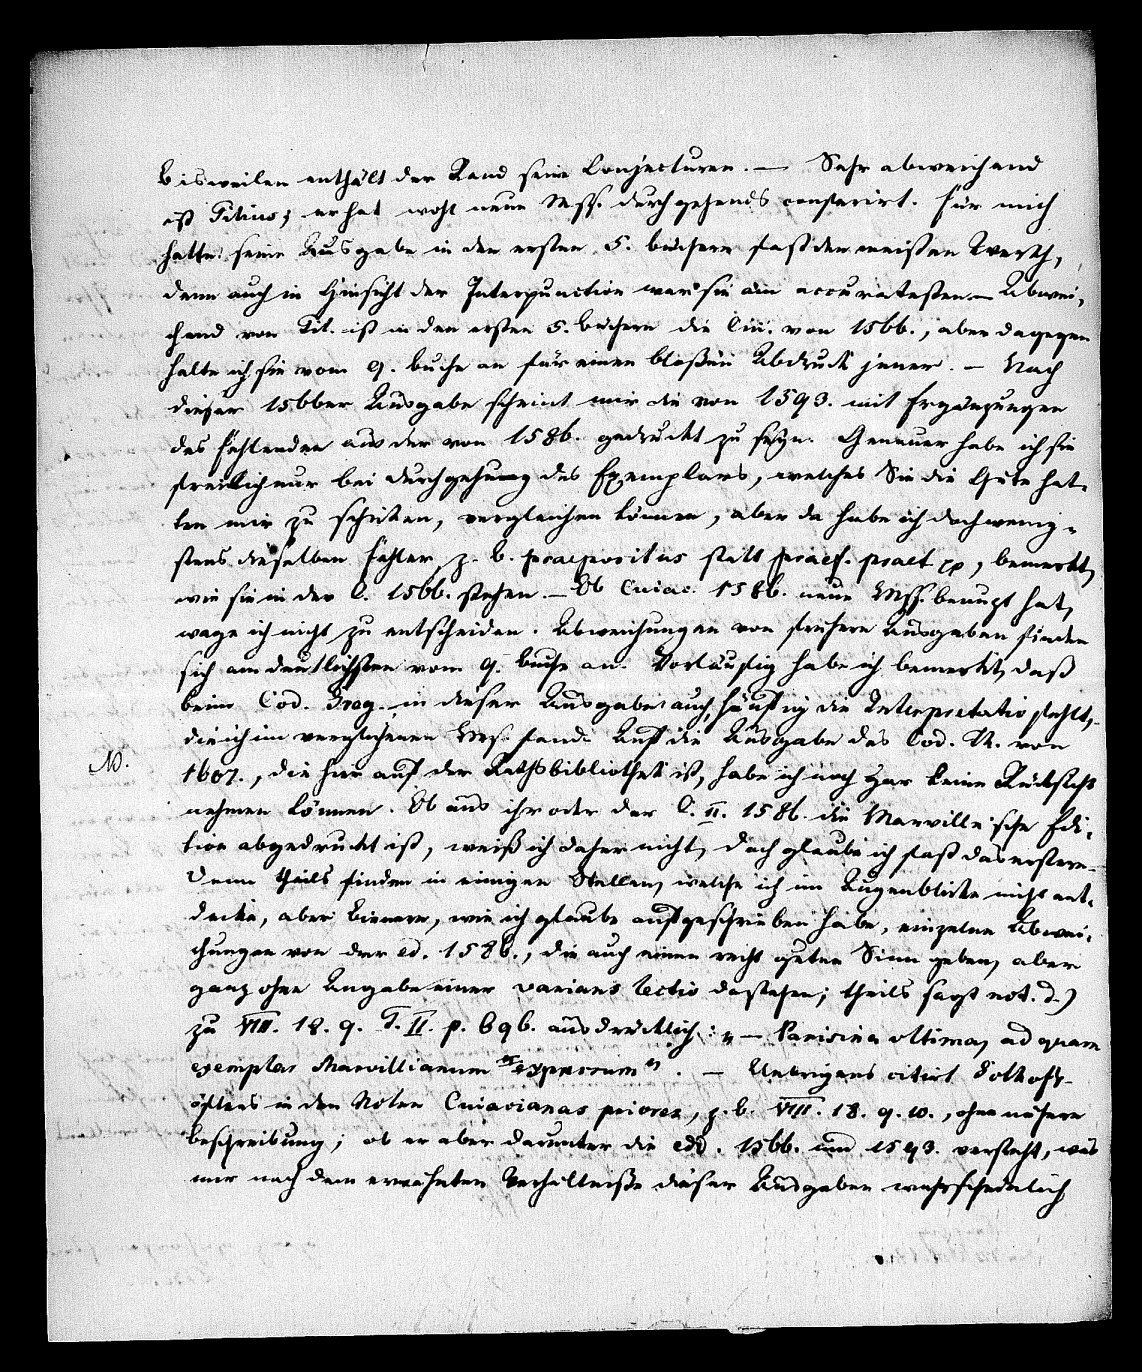 Bisweilen enthält der Rand seine Conjecturen. — Sehr abweichend
ist Tilius; er hat wohl neue Mss. durchgehends conferirt. Für mich
hatte seine Ausgabe in den ersten 5. Büchern fast den meisten Werth,
denn auch in Hinsicht der Interpunction war sie am accuratesten. — Abwei-
chend von Til. ist in den ersten 5. Büchern die Cui. von 1566., aber dagegen
halte ich sie vom 9. Buche an für einen bloßen Abdruck jener. — Nach
dieser 1566er Ausgabe scheint mir die von 1593. mit Ergänzungen
des Fehlenden aus der von 1586. gedruckt zu seyn. Genauer habe ich sie
freilich nur bei Durchgehung des Exemplars, welches Sie die Güte hat-
ten mir zu schicken, vergleichen können, aber da habe ich doch wenig-
stens dieselben Fehler, z. B. praepositus statt praef. praet pp, bemerkt,
wie sie in der C. 1566. stehen. — Ob Cuiac. 1586. neue Mss. benuzt hat,
wage ich nicht zu entscheiden. Abweichungen von frühern Ausgaben finden
sich am deutlichsten vom 9. Buche an. Vorläufig habe ich bemerkt, daß
beim Cod. Greg. in dieser Ausgabe auch häufig die Interpretatio fehlt,
die ich im verglichenen Ms. fand. Auf die Ausgabe des Cod. Th. von
NB. 1607., die hier auf der Rathsbibliothek ist, habe ich noch gar keine Rücksicht
nehmen können. Ob aus ihr oder der C. II. 1586. die Marville'sche Edi-
tion abgedruckt ist, weiß ich daher nicht, doch glaube ich fast das erstere.
Denn theils finden in einigen Stellen, welche ich im Augenblicke nicht ent-
decke, aber Bienern, wie ich glaube aufgeschrieben habe, einzelne Abwei-
chungen von der ed. 1586., die auch einen recht guten Sinn geben, aber
ganz ohne Angabe einer varians lectio dastehen; theils sagt not. d.)
zu VIII. 18. 9. T. II. p. 696. ausdrücklich: „— Parisina ultima, ad quam
exemplar Marvillianum expressum“. — Uebrigens citirt Gothofr.
öfters in den Noten Cuiacianas priores, z. b. VIII. 18. 9. 10., ohne nähere
Beschreibung; ob er aber darunter die edd. 1566. und 1593. versteht, was
mir nach dem erwähnten Verhältniße dieser Ausgaben wahrscheinlich